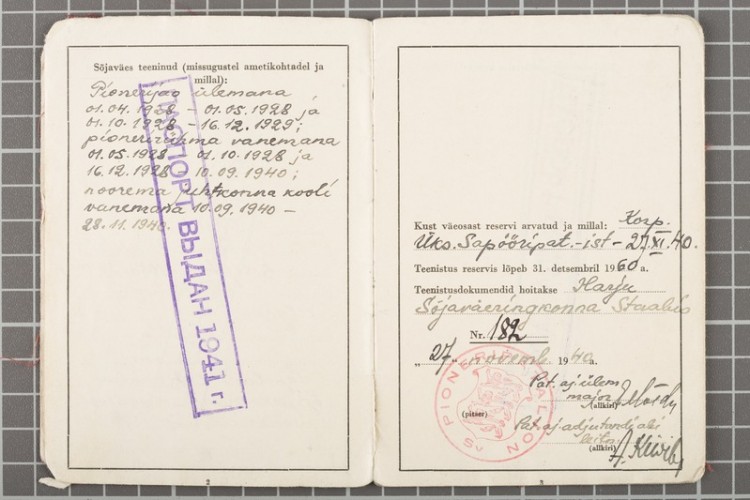 Sõjaväes teeninud (missugustel ametikohtadel ja
millal):
Pioneerijao ülemana
01.04.1928 – 01.05.1928 ja
01.10.1928 – 16.12.1929;
pioneerirühma vanemana
01.05.1928 – 01.10.1928 ja
16.12.1928 – 10.09.1940;
noorema juhtkonna kooli
vanemana 10.09.1940 –
28.11.1940.
ПАСПОРТ ВЫДАН 1941 г.
2
Kust väeosast reservi arvatud ja millal: Korp.
Üks. Sapööripat.-ist – 27.XI.40.
Teenistus reservis lõpeb 31. detsembril 1960 a.
Teenistusdokumendid hoitakse Harju
Sõjaväeringkonna Staabis
Nr. 182
"27" novemb. 1940 a.
Pat. aj. ülem
major
(allkiri)
(pitser)
Pat. aj. adjutandi abi
(allkiri)
PIONEERIPATALJON
3